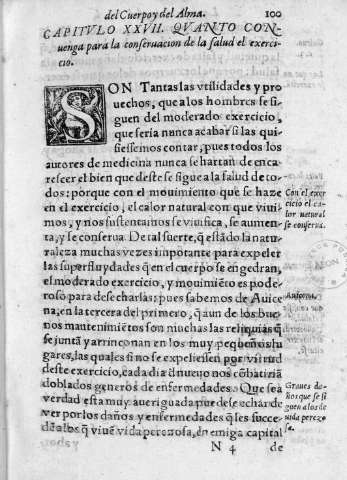 del Cuerpo y del Alma. 100
CAPITVLO XXVII. QVANTO CON-
uenga para la conseruacion de la salud el exerci-
cio.
SON Tantas las vtilidades y pro
uechos, que a los hombres se si
guen del moderado exercicio,
que seria nunca acabar si las qui
siessemos contar, pues todos los
autores de medicina nunca se hartan de enca
rescer el bien que deste se sigue a la salud de to
dos: porque con el mouimiento que se haze
en el exercicio, el calor natural con que viui-
mos, y nos sustentamos se viuifica, se aumen
ta, y se conserua. De tal suerte, q̃ estãdo la natu
raleza muchas vezes impotante para expeler
las superfluydades q̃ en el cuerpo se engedran,
el moderado exercicio, y mouimiẽto es pode-
roso para desecharlas: pues sabemos de Auice
na, en la tercera del primero, q̃ aun de los bue
nos mantenimiẽtos son muchas las reliquias q̃
se juntã y arrinconan en los muy pequeños lu
gares, las quales si no se expeliessen por virtud
deste exercicio, cada dia d nueuo nos cõbatiriã
doblados generos de enfermedades. Que sea
verdad esta muy aueriguada puede se echar de
ver por los daños y enfermedades q̃ se succe-
dẽ a los q̃ viuẽ vida perezosa, en emiga capital
N 4 de
Con el exer
cicio el ca-
lor natural
se conserua.
Graues da-
ños que se si
guen a los de
vida perezo
sa.